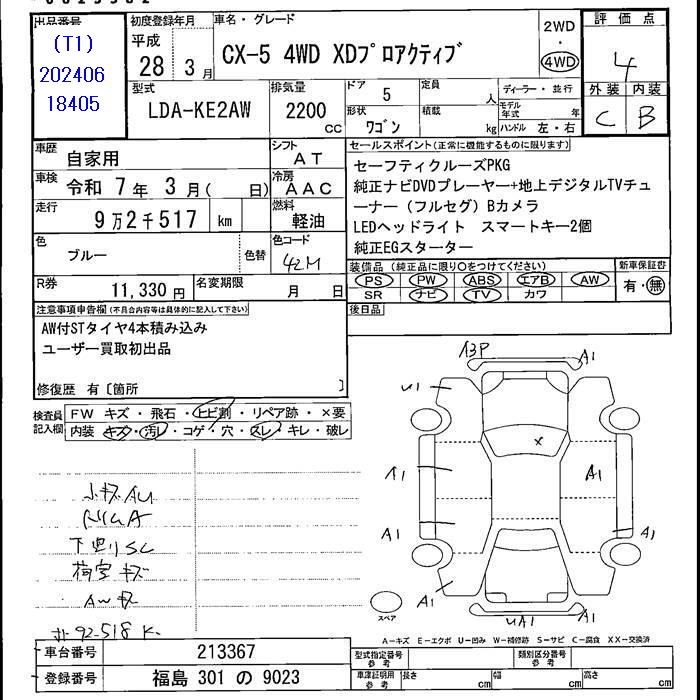 出品番号
(T1)
202406
18405
初度登録年月
平成
28年 3月
車名・グレード
CX-5 4WD XDプロアクティブ
2WD
・
4WD
評価点
4
外装 内装
C B
型式
LDA-KE2AW
排気量
2200
cc
ドア
5
形状
ワゴン
定員
人
積載
kg
ディーラー・並行
モデル年式 年
ハンドル 左・右
車歴
自家用
シフト
AT
車検
令和 7年 3月( 日)
冷房
AAC
走行
9万2千517 km
燃料
軽油
色
ブルー
色替
色コード
42M
R券
11,330円
名変期限
月 日
セールスポイント(正常に機能するものに限ります)
セーフティクルーズPKG
純正ナビDVDプレーヤー+地上デジタルTVチュ
ーナー(フルセグ)Bカメラ
LEDヘッドライト スマートキー2個
純正EGスターター
装備品(純正品に限り○をつけてください)
PS PW ABS エアB AW
SR ナビ TV カワ
新車保証書
有・無
後日品
注意事項申告欄(不具合内容等は具体的に記入して下さい)
AW付STタイヤ4本積み込み
ユーザー買取初出品
修復歴 有〔箇所 〕
検査員
記入欄
FW キズ・飛石・ヒビ割・リペア跡・×要
内装 キズ・汚レ・コゲ・穴・スレ・キレ・破レ
小キズAU
下廻りSC
荷室キズ
AWキズ
92-518 K
A3P
A1
U1
A1
A1
A1
A1
A1
A1
UA1
x
スペア
A-キズ E-エクボ U-凹み W-補修跡 S-サビ C-腐食 XX-交換済
車台番号
213367
登録番号
福島 301 の 9023
型式指定番号
参考
類別区分番号
参考
車庫証明用
参考
長さ cm
幅 cm
高さ cm